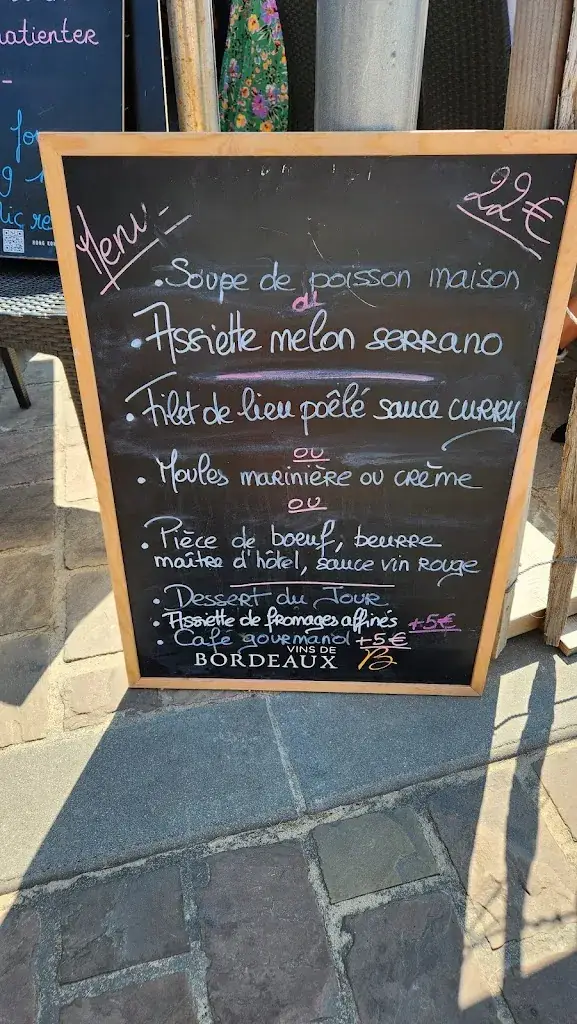 patienter
Menu
22€
. Soupe de poisson maison
ou
. Assiette melon serrano
. Filet de lieu poêlé sauce curry
ou
. Moules marinière ou crème
ou
. Pièce de boeuf, beurre
maître d'hôtel, sauce vin rouge
. Dessert du Jour
. Assiette de fromages affinés +5€
. Café gourmand +5€
VINS DE
BORDEAUX B